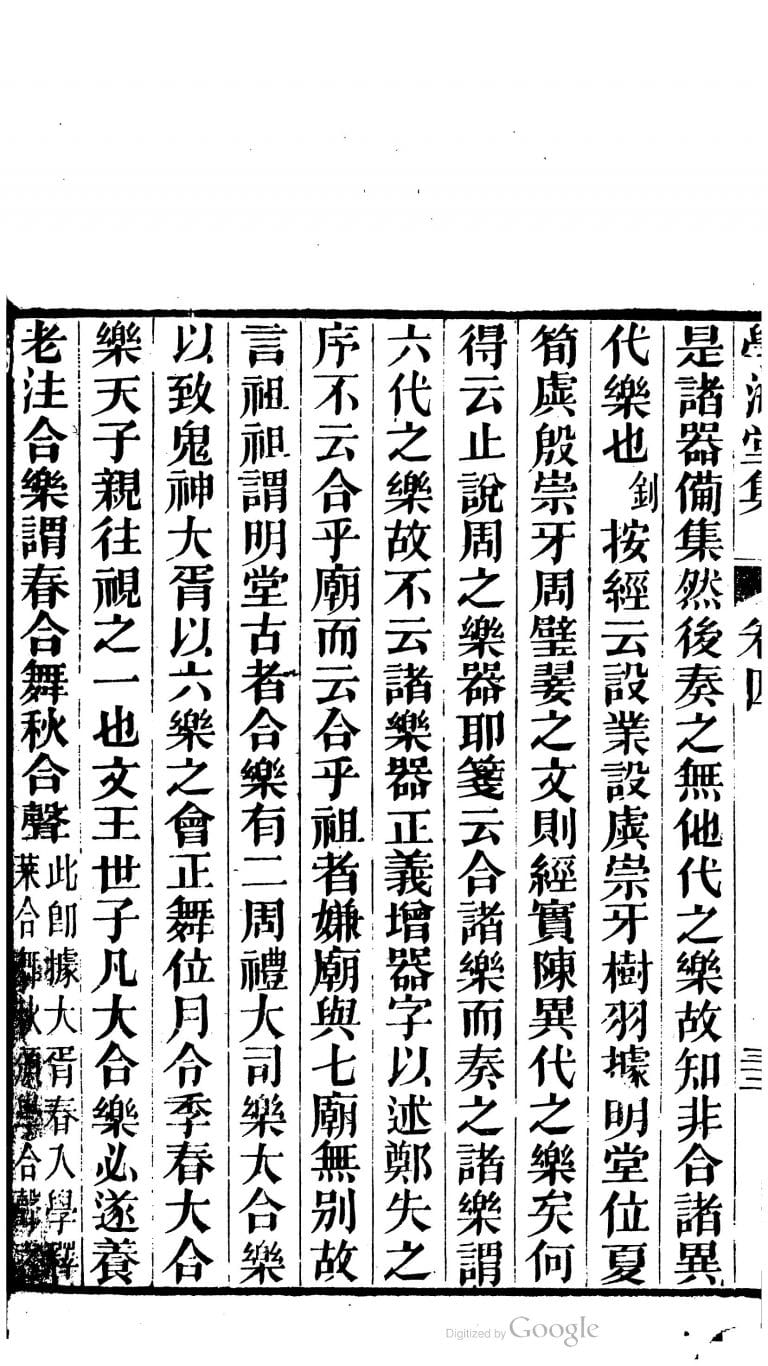 學海堂集 卷四 三二
是諸器備集然後奏之無他代之樂故知非合諸異
代樂也 釗按經云設業設虡崇牙樹羽據明堂位夏
筍虡殷崇牙周璧翣之文則經實陳異代之樂矣何
得云止說周之樂器耶箋云合諸樂而奏之諸樂謂
六代之樂故不云諸樂器正義增器字以述鄭失之
序不云合乎廟而云合乎祖者嫌廟與七廟無別故
言祖祖謂明堂古者合樂有二周禮大司樂大合樂
以致鬼神大胥以六樂之會正舞位月令季春大合
樂天子親往視之一也文王世子凡大合樂必遂養
老注合樂謂春合舞秋合聲
此卽據大胥春入學釋
菜合舞秋頒學合聲
Digitized by Google